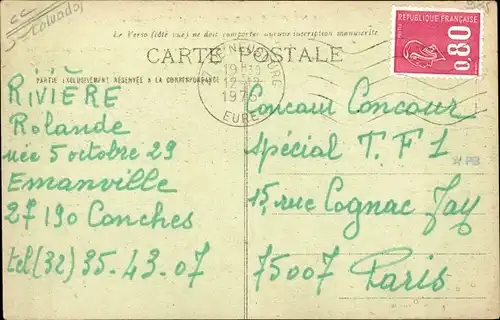 CC
Calvados
Le Verso (côté vue) ne doit comporter aucune inscription manuscrite
CARTE POSTALE
PARTIE EXCLUSIVEMENT RÉSERVÉE A LA CORRESPONDANCE
RÉPUBLIQUE FRANÇAISE
0,80
19 H
12-12
1976
EURE
RIVIÈRE
Rolande
née 5 octobre 29
Emanville
27190 Conches
tel (32) 35.43.07
Concours
Spécial T.F1
15, rue Cognac Jay
75007 Paris